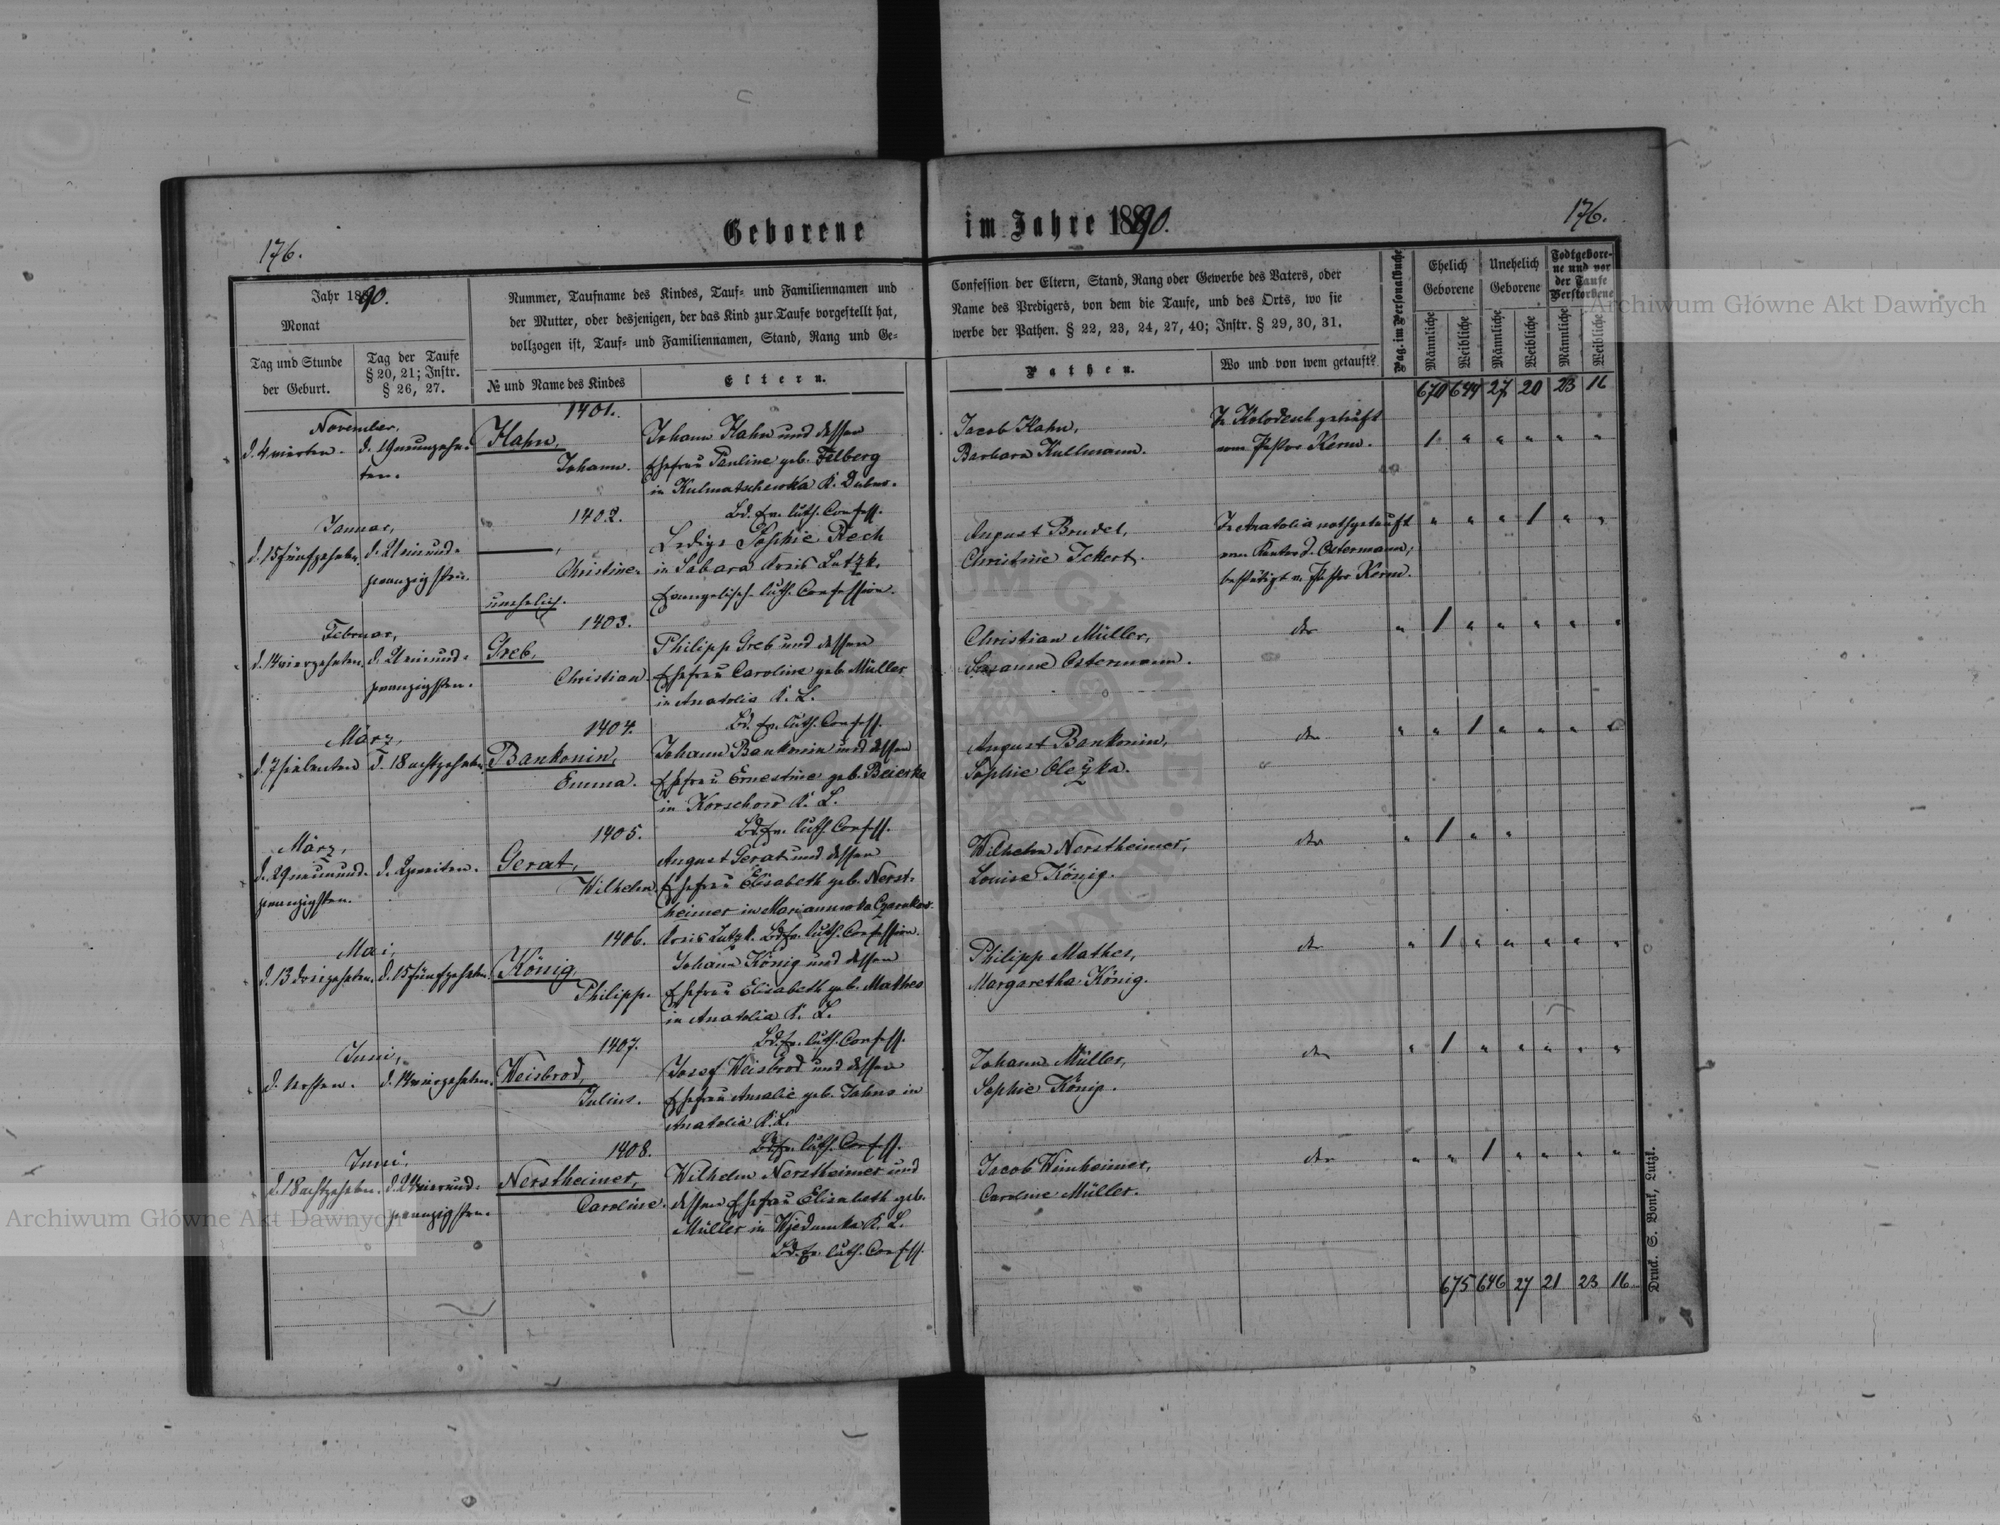 Geborene im Jahre 1890.
176.
176.
Jahr 1890.
Monat
Tag und Stunde
der Geburt.
Tag der Taufe
§ 20, 21; Instr.
§ 26, 27.
Nummer, Taufname des Kindes, Tauf- und Familiennamen und
der Mutter, oder desjenigen, der das Kind zur Taufe vorgestellt hat,
vollzogen ist, Tauf- und Familiennamen, Stand, Rang und Ge-
№ und Name des Kindes
Eltern.
Confession der Eltern, Stand, Rang oder Gewerbe des Vaters, oder
Name des Predigers, von dem die Taufe, und des Orts, wo sie
werbe der Pathen. § 22, 23, 24, 27, 40; Instr. § 29, 30, 31.
Pathen.
Wo und von wem getauft?
Pag. im Personalbuche
Ehelich
Geborene
Unehelich
Geborene
Todtgebore-
ne und vor
der Taufe
Verstorbene
Männliche
Weibliche
Männliche
Weibliche
Männliche
Weibliche
670 644 27 20 23 16
November,
d. 4 vierten.
d. 19 neunzehn-
ten.
1401.
Hahn,
Johann.
Johann Hahn und dessen
Ehefrau Pauline geb. Felberg
in Kulmatschewka K. Dubno.
Bd. Ev. luth. Confess.
Jacob Hahn,
Barbara Kullmann.
In Kolodesch getauft
vom Pastor Kerm.
1 " " " " "
Januar,
d. 15 fünfzehnten.
d. 21 einund-
zwanzigsten.
1402.
Christine.
unehelich.
Ledige Sophie Rech
in Sabara Kreis Lutzk.
Evangelisch-luth. Confession.
August Brudel,
Christine Ickert.
In Anatolia nothgetauft
vom Kantor J. Ostermann,
bestätigt v. Pastor Kerm.
" " " 1 " "
Februar,
d. 14 vierzehnten.
d. 21 einund-
zwanzigsten.
1403.
Greb,
Christian.
Philipp Greb und dessen
Ehefrau Caroline geb. Müller
in Anatolia K. L.
Bd. Ev. luth. Confess.
Christian Müller,
Susanne Ostermann.
dto
" 1 " " " " "
März,
d. 7 siebenten
d. 18 achtzehnten
1404.
Bankonin,
Emma.
Johann Bankonin und dessen
Ehefrau Ernestine geb. Beierka
in Korschow K. L.
Bd. Ev. luth. Confess.
August Bankonin,
Sophie Olezka.
dto
" " 1 " " "
März,
d. 29 neunund-
zwanzigsten.
d. 2 zweiten.
1405.
Gerat,
Wilhelm.
August Gerat und dessen
Ehefrau Elisabeth geb. Nerst-
heimer in Mariannwka Czarukow
Kreis Lutzk. Bd. Ev. luth. Confession.
Wilhelm Nerstheimer,
Louise König.
dto
" 1 " "
Mai,
d. 13 dreizehnten.
d. 15 fünfzehnten.
1406.
König,
Philipp.
Johann König und dessen
Ehefrau Elisabeth geb. Mathes
in Anatolia K. L.
Bd. Ev. luth. Confess.
Philipp Mathes,
Margaretha König.
dto
" 1 " " " " "
Juni,
d. 1 ersten.
d. 14 vierzehnten.
1407.
Weisbrod,
Julius.
Josef Weisbrod und dessen
Ehefrau Amalie geb. Jahns in
Anatolia K. L.
Bd. Ev. luth. Confess.
Johann Müller,
Sophie König.
dto
" 1 " " " " "
Juni,
d. 18 achtzehnten.
d. 24 vierund-
zwanzigsten.
1408.
Nerstheimer,
Caroline.
Wilhelm Nerstheimer und
dessen Ehefrau Elisabeth geb.
Müller in Wjedumka K. L.
Bd. Ev. luth. Confess.
Jacob Weinheimer,
Caroline Müller.
dto
" " 1 " " " "
675 646 27 21 23 16
Druck. S. Bonk, Lutzk.
Archiwum Główne Akt Dawnych
Archiwum Główne Akt Dawnych